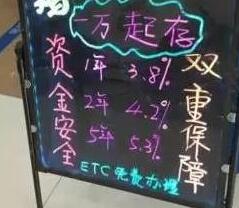 一万起存
资金安全
1年 3.8%
2年 4.2%
5年 5.3%
双重保障
ETC免费办理